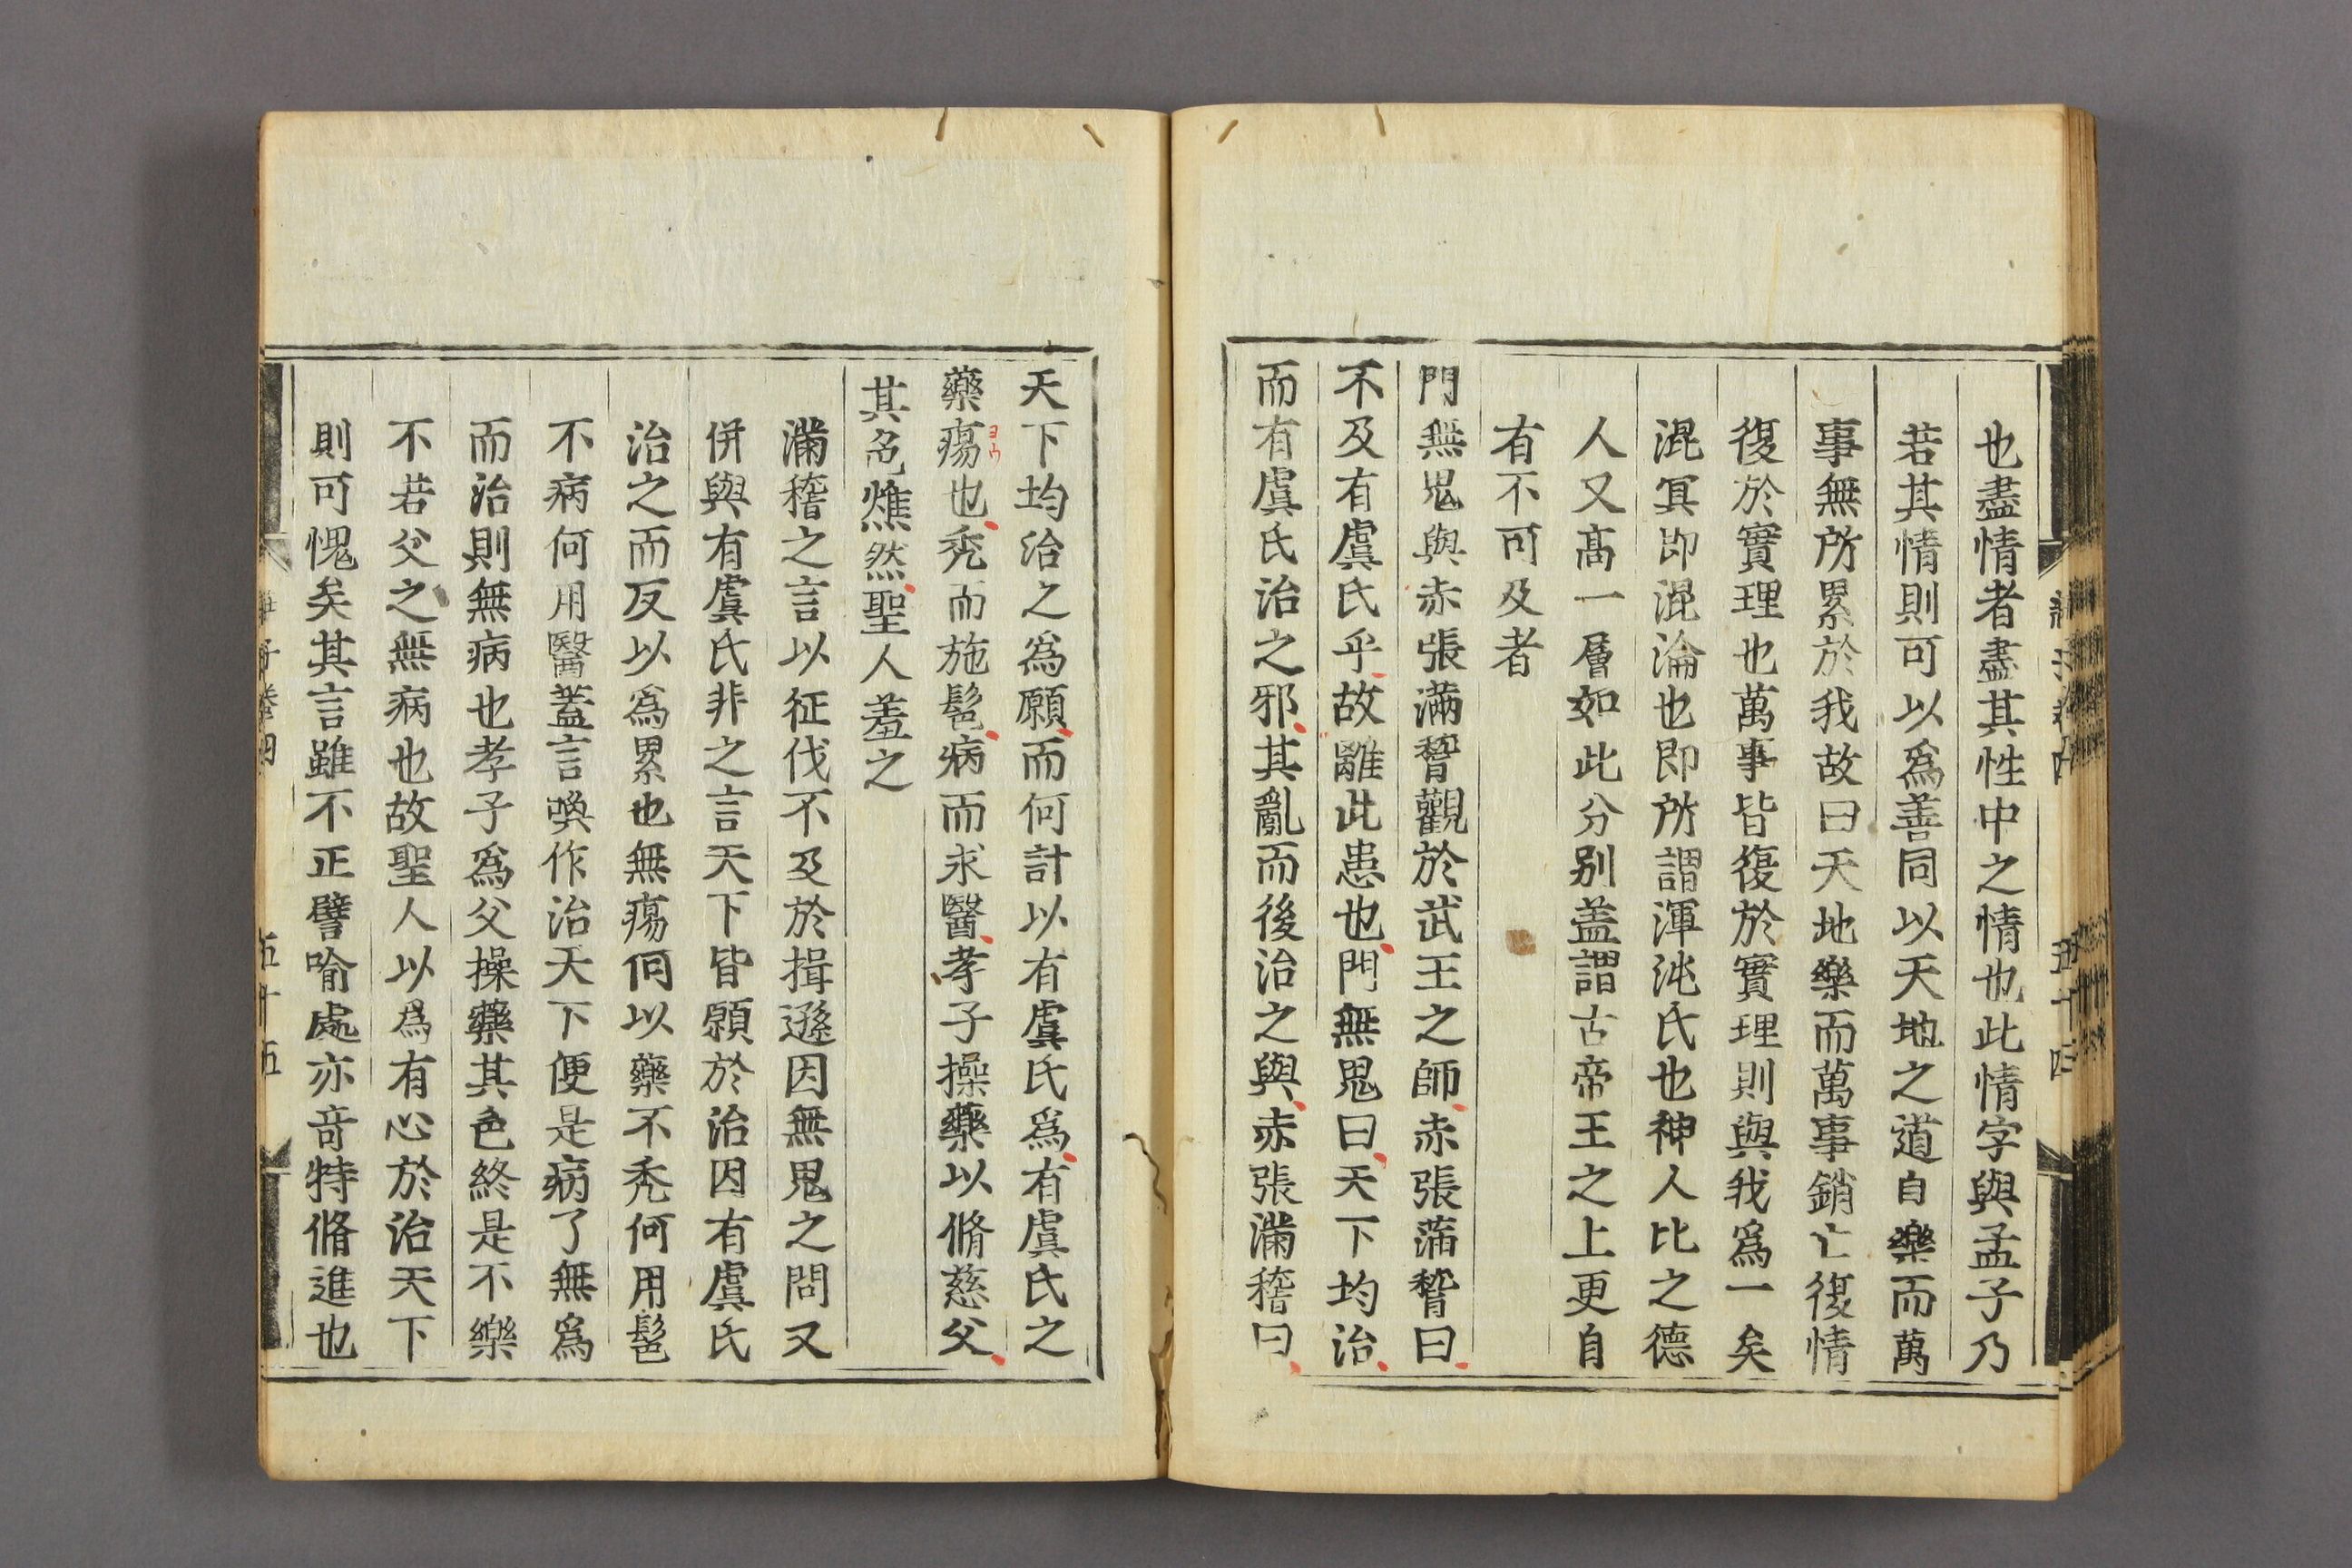 也盡情者盡其性中之情也此情字與孟子乃
若其情則可以爲善同以天地之道自樂而萬
事無所累於我故曰天地樂而萬事銷亡復情
復於實理也萬事皆復於實理則與我爲一矣
混冥即混淪也即所謂渾沌氏也神人比之德
人又髙一層如此分别盖謂古帝王之上更自
有不可及者
門無鬼與赤張滿稽觀於武王之師赤張滿稽曰
不及有虞氏乎故離此患也門無鬼曰天下均治
而有虞氏治之邪其亂而後治之與赤張滿稽曰
天下均治之爲願而何計以有虞氏爲有虞氏之
藥瘍也秃而施髢病而求醫孝子操藥以脩慈父
ヨウ
其色燋然聖人羞之
滿稽之言以征伐不及於揖遜因無鬼之問又
併與有虞氏非之言天下皆願於治因有虞氏
治之而反以爲累也無瘍何以藥不秃何用髢
不病何用醫蓋言喚作治天下便是病了無爲
而治則無病也孝子爲父操藥其色終是不樂
不若父之無病也故聖人以爲有心於治天下
則可愧矣其言雖不正譬喻處亦竒特脩進也
五十五